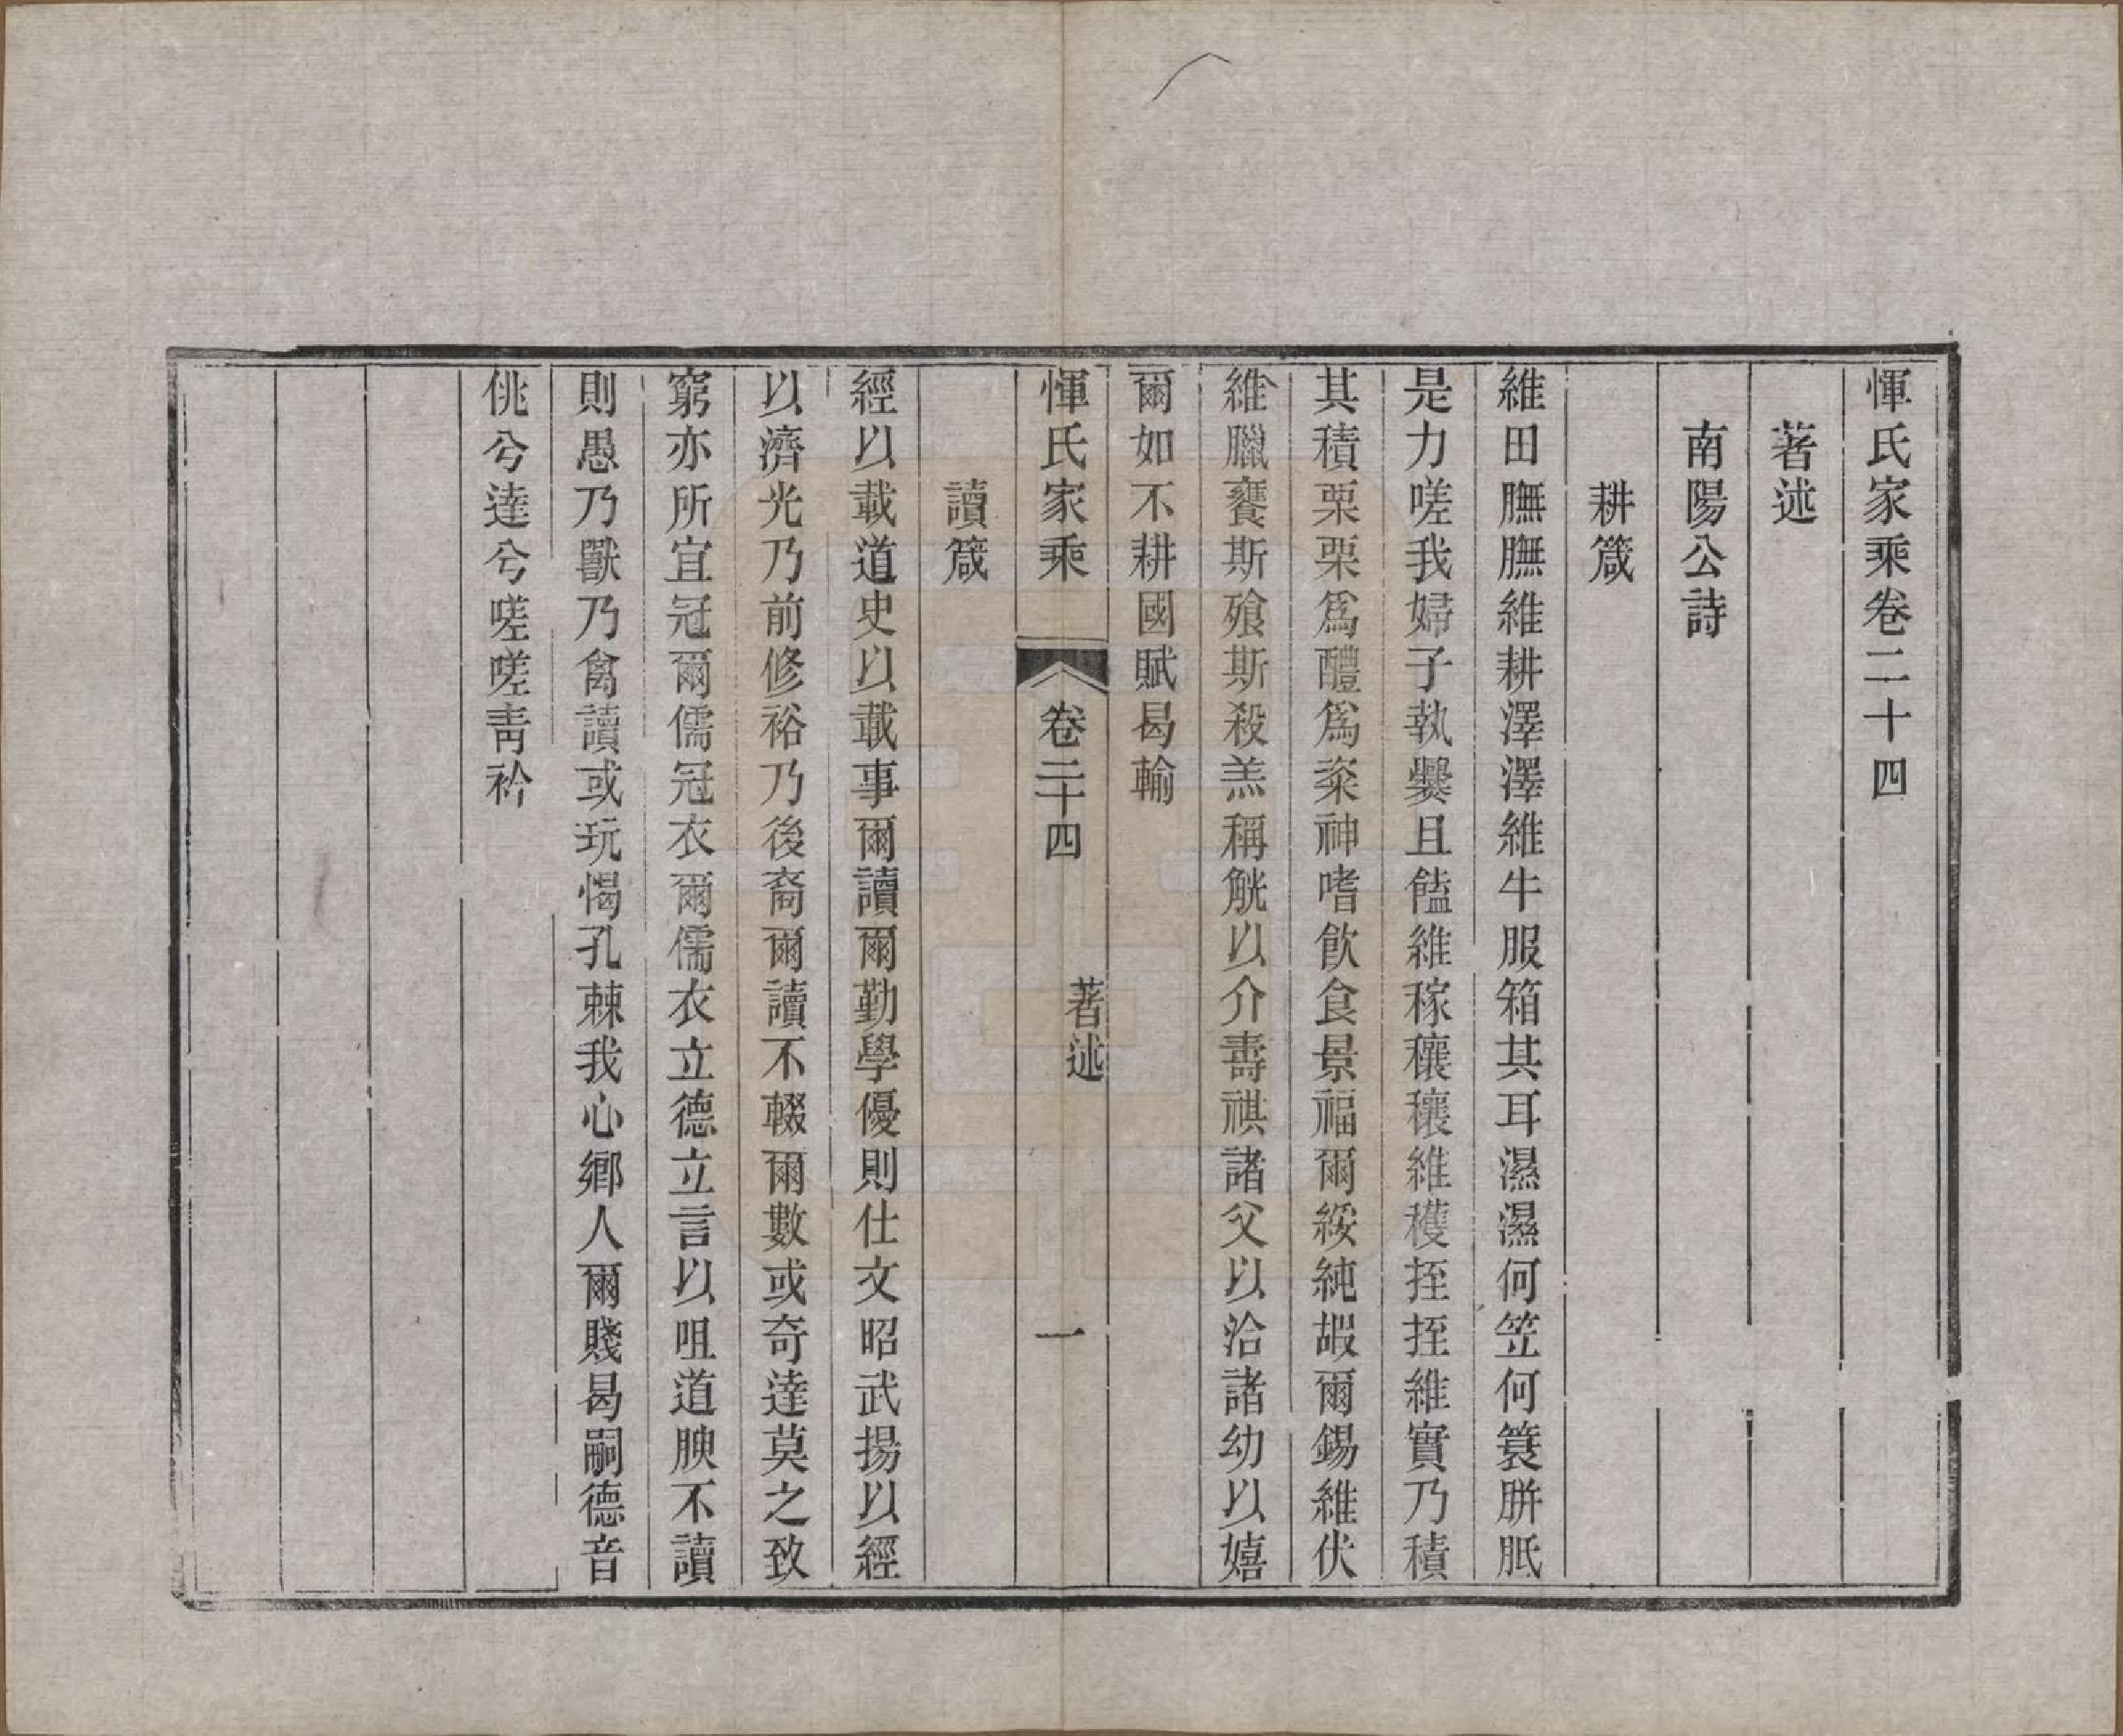 惲氏家乘卷二十四
著述
南陽公詩
耕箴
維田膴膴維耕澤澤維牛服箱其耳濕濕何笠何簑胼胝
是力嗟我婦子執爨且饁維稼穰穰維穫挃挃維實乃積
其積栗栗爲醴爲粢神嗜飲食景福爾綏純嘏爾錫維伏
維臘饔斯飧斯殺羔稱觥以介壽祺諸父以洽諸幼以嬉
爾如不耕國賦曷輸
惲氏家乘 卷二十四 著述 一
讀箴
經以載道史以載事爾讀爾勤學優則仕文昭武揚以經
以濟光乃前修裕乃後裔爾讀不輟爾數或奇達莫之致
窮亦所宜冠爾儒冠衣爾儒衣立德立言以咀道腴不讀
則愚乃獸乃禽讀或玩愒孔棘我心鄉人爾賤曷嗣德音
佻兮達兮嗟嗟青衿